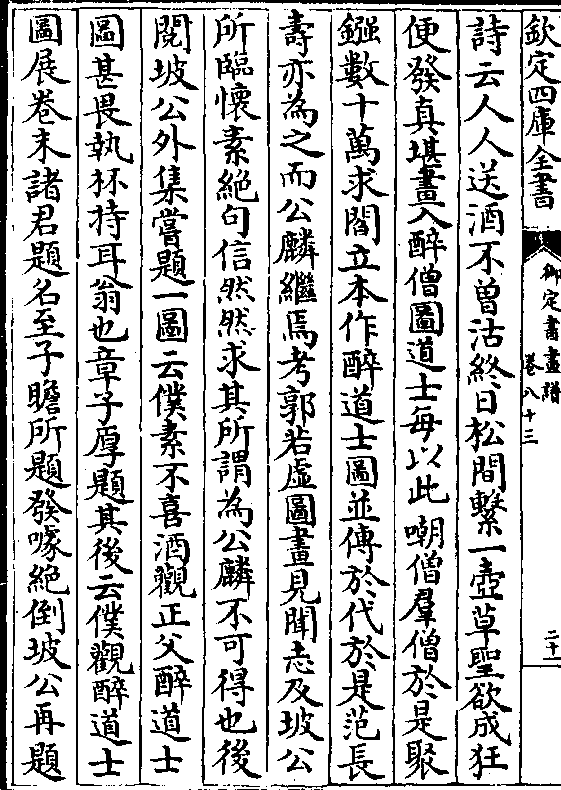 欽定四庫全書
御定書畫譜
卷八十三
二十一
詩云人人送酒不曽沽終日松間繫一壺草聖欲成狂
便發真堪畫入醉僧圖道士每以此嘲僧羣僧於是聚
鏹數十萬求閻立本作醉道士圖並傳於代於是范長
壽亦為之而公麟繼焉考郭若虛圖畫見聞志及坡公
所臨懷素絶句信然然求其所謂為公麟不可得也後
閲坡公外集嘗題一圖云僕素不喜酒觀正父醉道士
圖甚畏執杯持耳翁也章子厚題其後云僕觀醉道士
圖展卷末諸君題名至子瞻所題發噱絶倒坡公再題